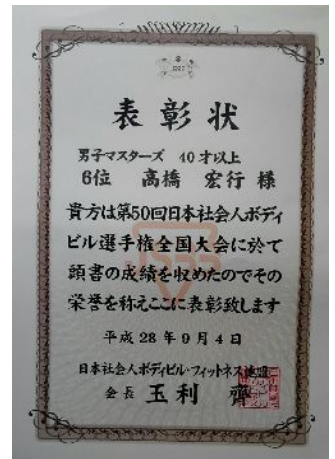 表彰状
男子マスターズ 40才以上
6位 高橋 宏行 様
貴方は第50回日本社会人ボディ
ビル選手権全国大会に於て
頭書の成績を収めたのでその
栄誉を称えここに表彰致します
平成28年9月4日
日本社会人ボディビル・フィットネス連盟
会長 玉利 齊